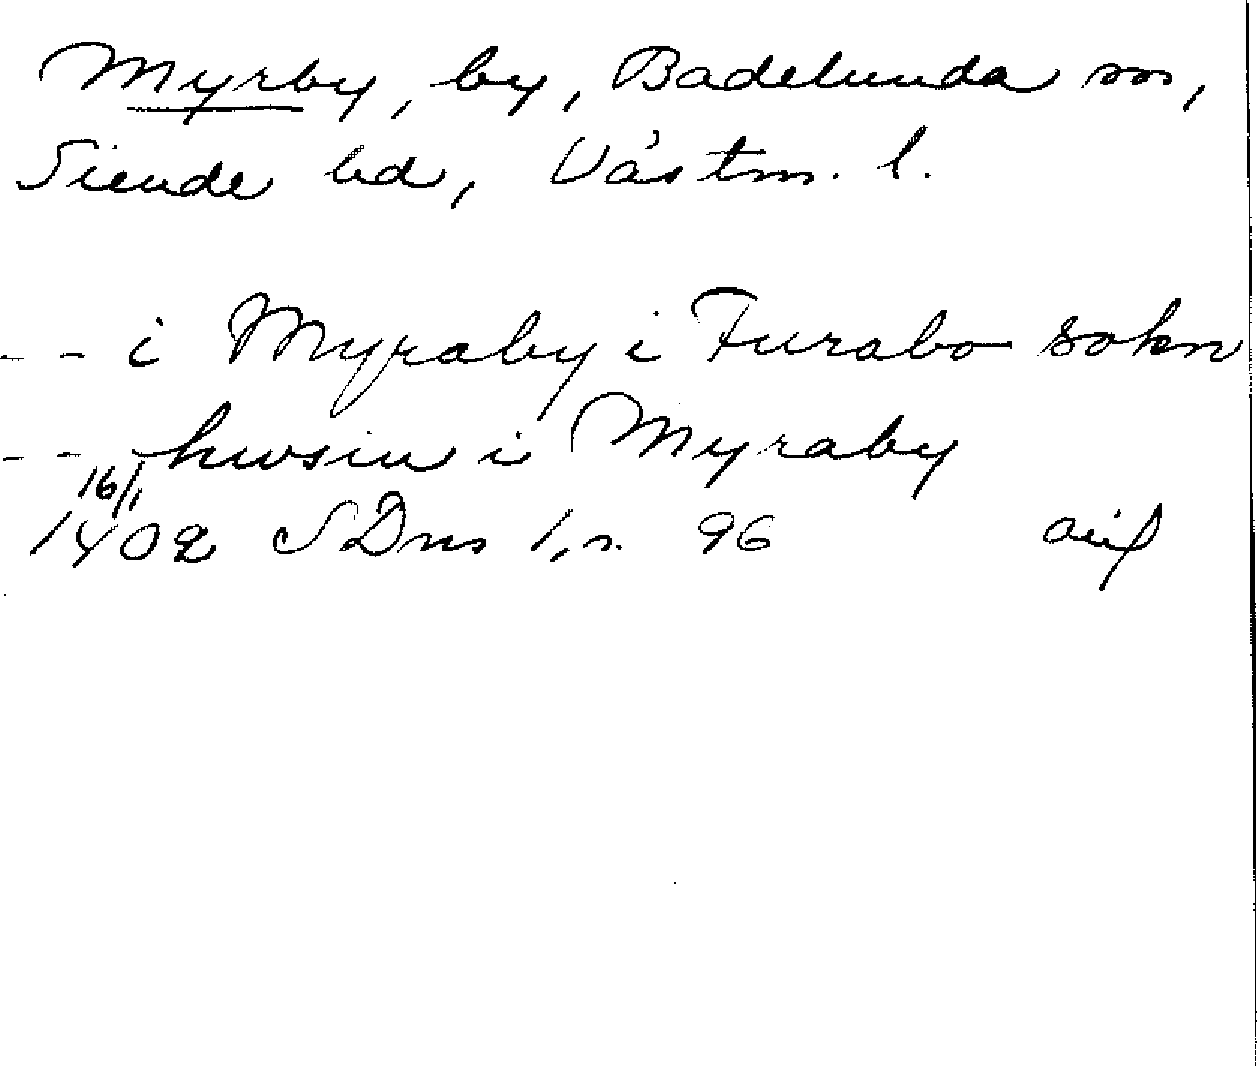 Myrby, by, Badelunda sn,
Siende hd, Västm. l.
-- i Myraby i Furabo sokn
-- hwsin i Myraby
16/1
1402 SDns 1, s. 96